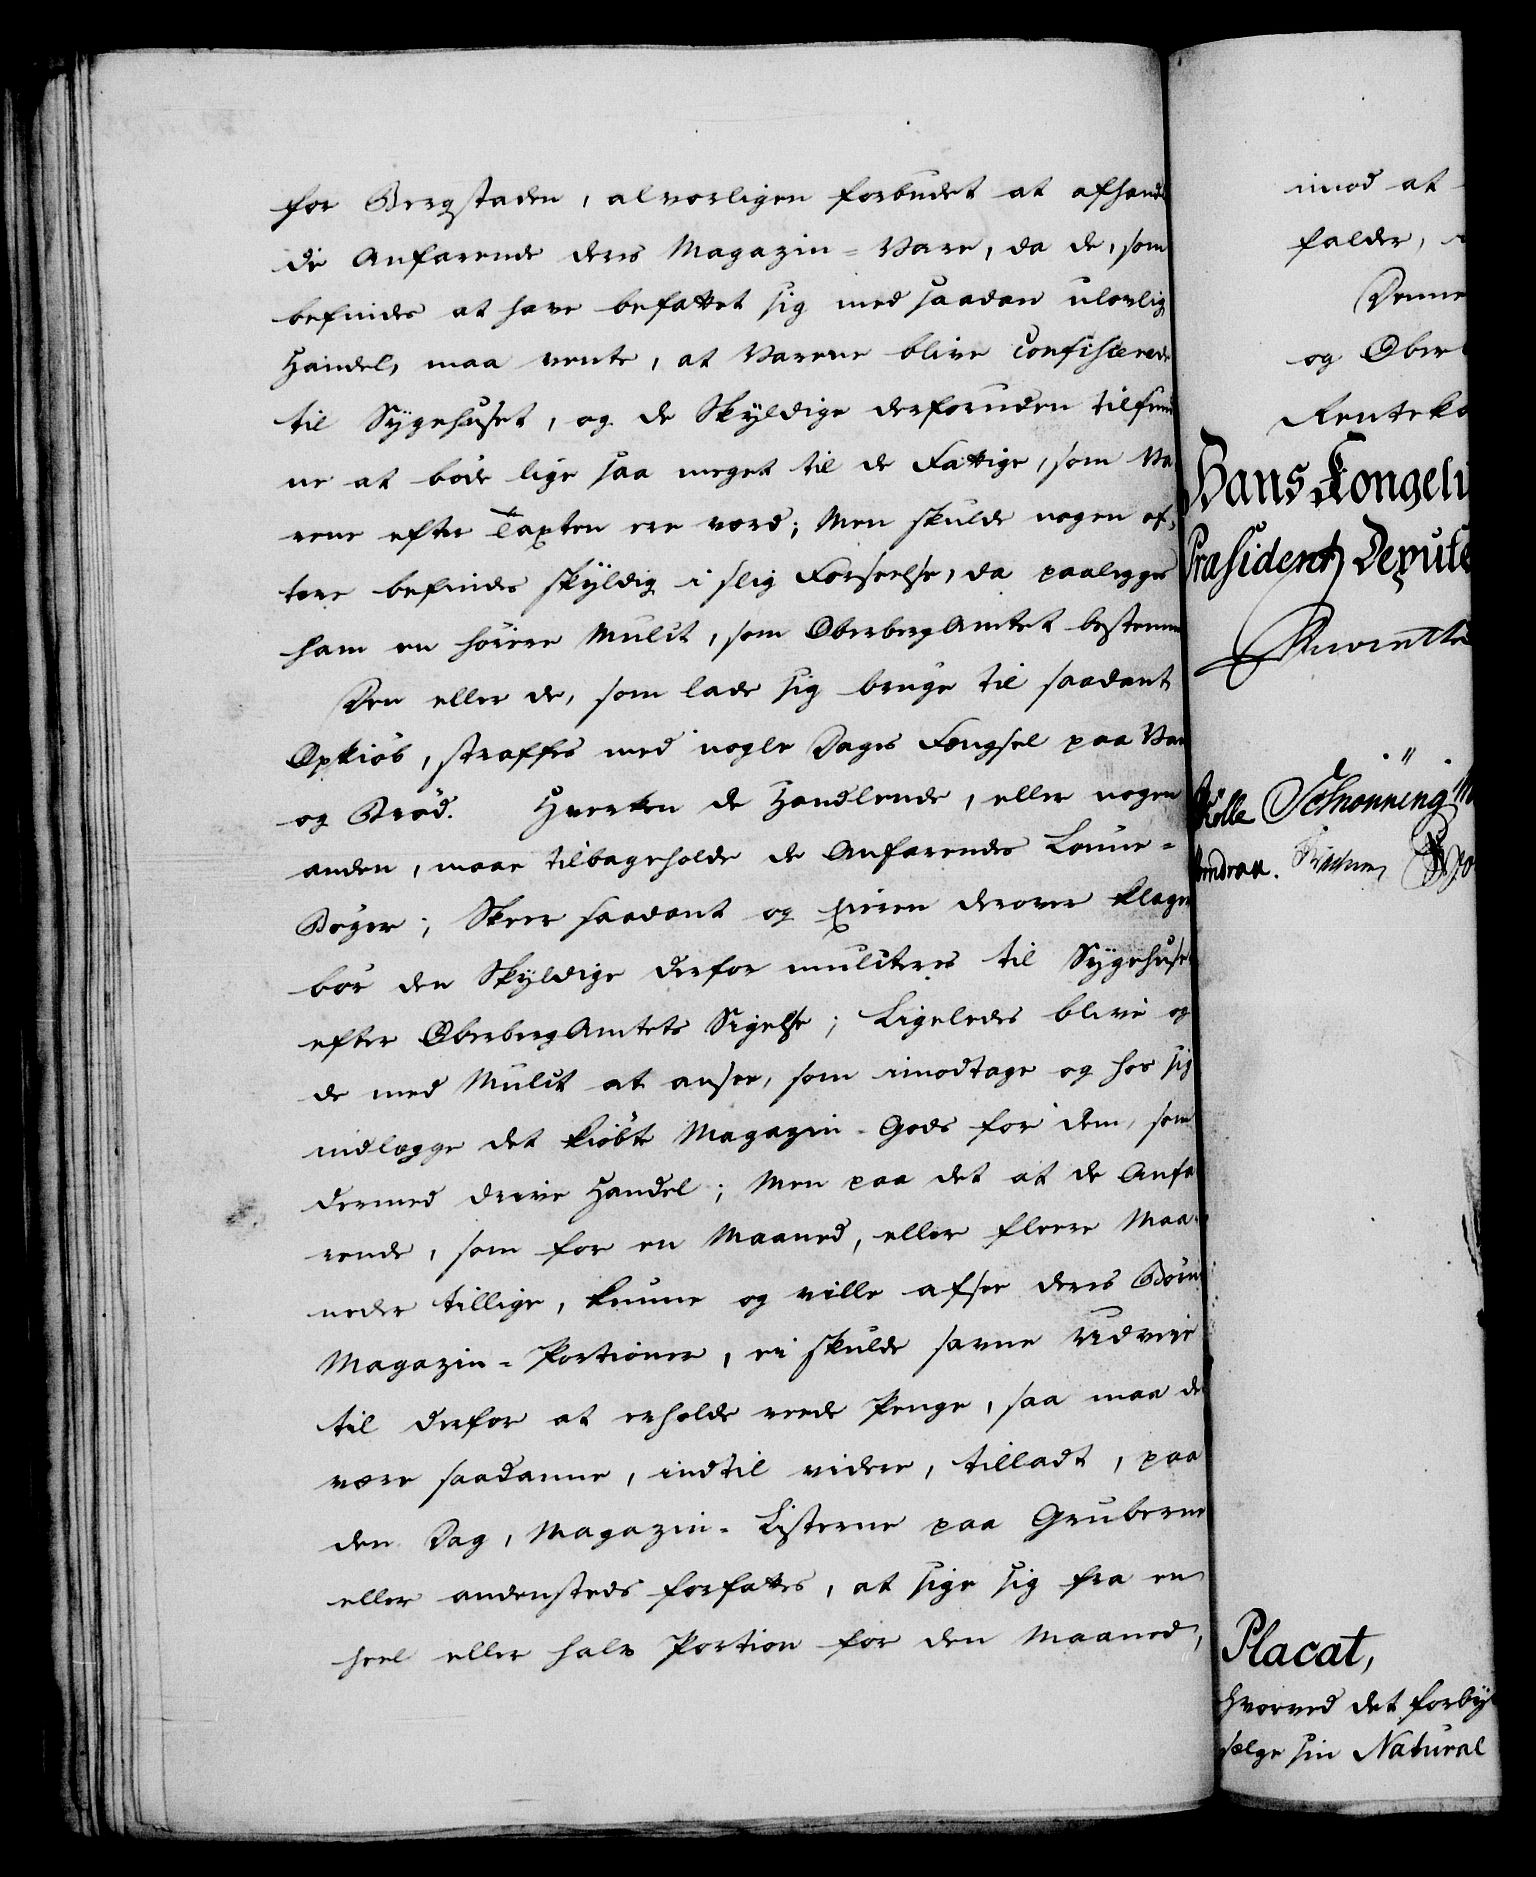 for Bergstaden, alvorligen forbudet at afhand
de Anfarende deres Magazin-Vare, da de, som
befindes at have befattet sig med saadan ulovlig
Handel, maa vente, at Varene blive Confiscerede
til Sygehuset, og de Skyldige desforuden tilfin
ne at bøde lige saa meget til de Fattige, som Va
rene efter Taxten ere værd; Men skulde nogen of,
tere befindes skyldig i slig Forseelse, da paalegges
ham en høiere Mulct, som OberbergAmtet bestemme
Den eller de, som lade sig bruge til saadant
Opkiøb, straffes med nogle Dages Fængsel paa Van
og Brød. Hverken de Handlende, eller nogen
anden, maae tilbageholde de Anfarendes Lønne-
Bøger; Skeer saadant og Eieren derover klager
bør den Skyldige derfor mulcteres til Sygehuset
efter OberbergAmtets Sigelse; Ligeledes blive og
de med Mulct at ansee, som imodtage og hos sig
indlægge det kiøbte Magazin-Gods for dem, som
dermed drive Handel; Men paa det at de Anfa
rende, som for en Maaned, eller fleere Maa-
neder tillige, kunne og ville afsee deres Børn
Magazin-Portioner, ei skulde savne Udveie
til derfor at erholde reede Penge, saa maa de
være saadanne, indtil videre, tilladt, paa
den Dag, Magazin-Listerne paa Gruberne
eller andensteds forfattes, at sige sig fra en
heel eller halv Portion for den Maaned,
imod at
falder,
Denne
og Ober
Renteka
Hans Kongeli
Præsident, Depute
Rolle Schønning
Placat,
hvorved det forby
sælge sin Natural